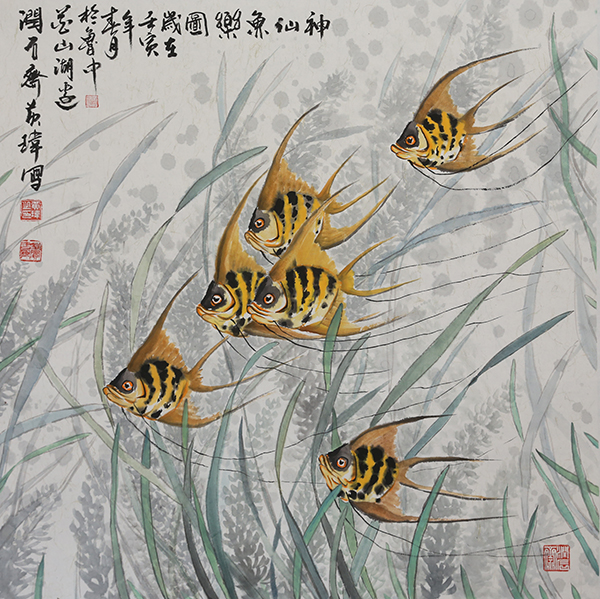 神仙魚樂圖
歲在
壬寅
年
春月
於魯中
山湖邊
潤齋黄瑋寫